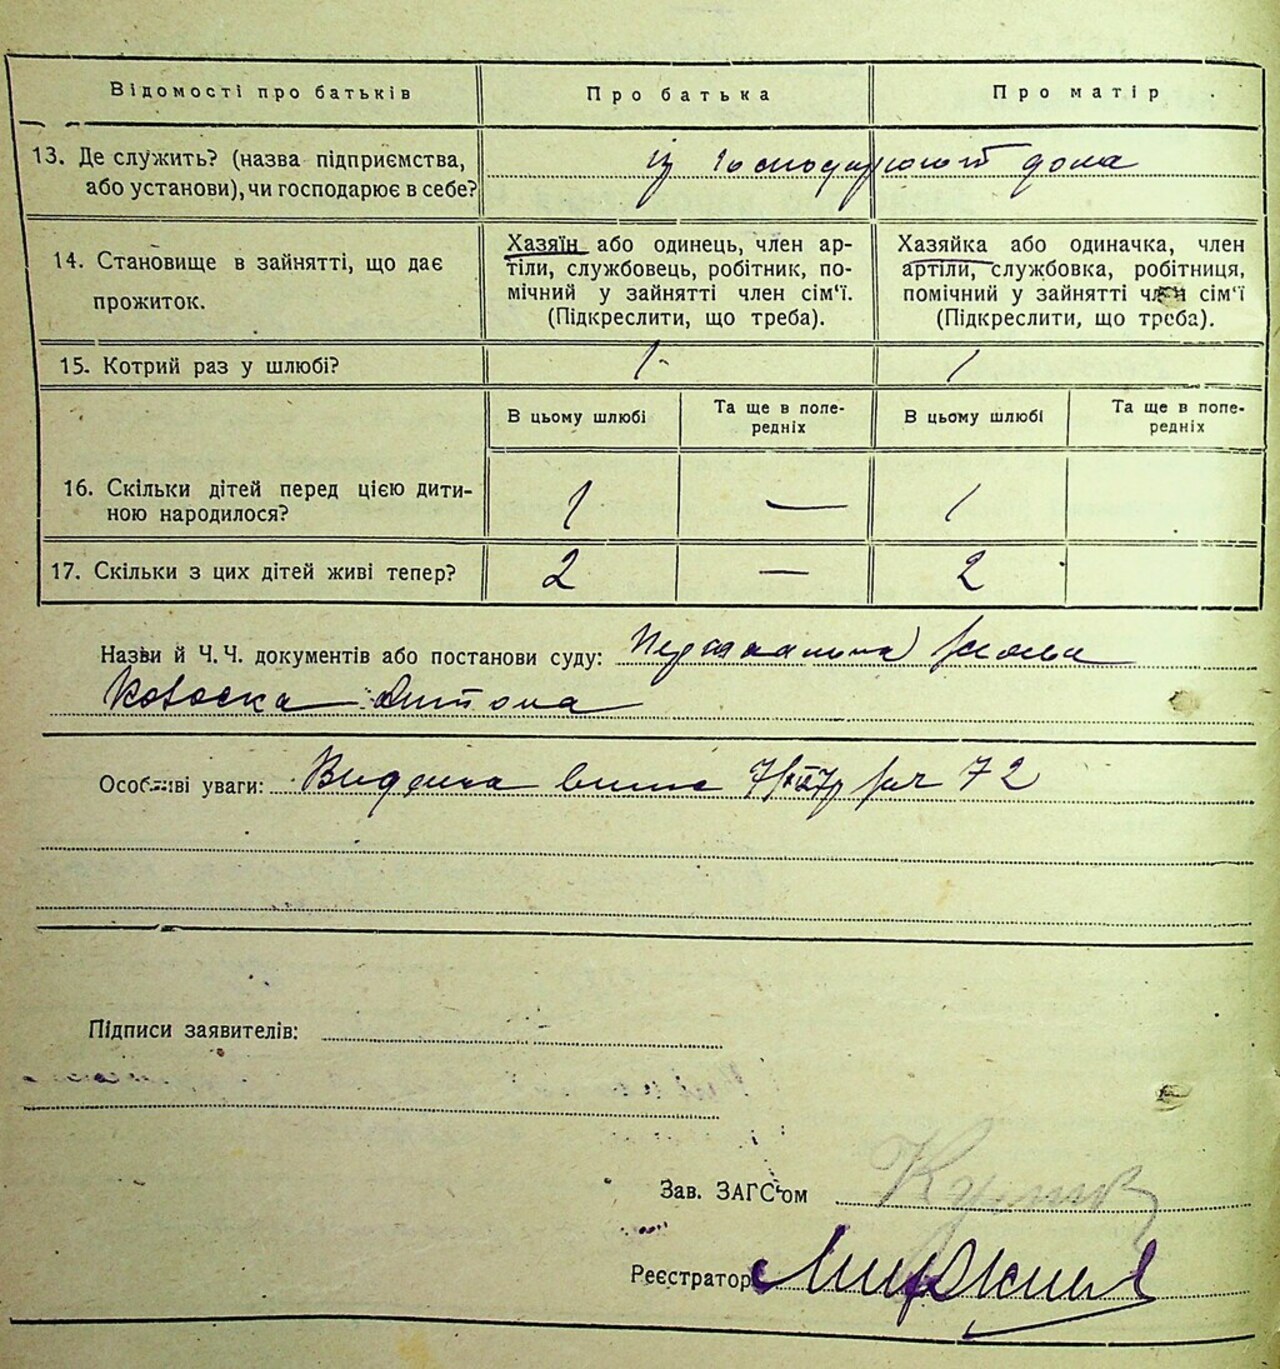 Відомості про батьків
Про батька
Про матір
13. Де служить? (назва підприємства,
або установи), чи господарює в себе?
дома
14. Становище в зайнятті, що дає
прожиток.
Хазяїн або одинець, член ар-
тіли, службовець, робітник, по-
мічний у зайнятті член сім‘ї.
(Підкреслити, що треба).
Хазяйка або одиначка, член
артіли, службовка, робітниця,
помічний у зайнятті член сім‘ї
(Підкреслити, що треба).
15. Котрий раз у шлюбі?
1
1
В цьому шлюбі
Та ще в попе-
редніх
В цьому шлюбі
Та ще в попе-
редніх
16. Скільки дітей перед цією дити-
ною народилося?
1 — 1
17. Скільки з цих дітей живі тепер?
2 — 2
Назви й Ч. Ч. документів або постанови суду:
Особливі уваги: 72
Підписи заявителів:
Зав. ЗАГС‘ом
Реєстратор